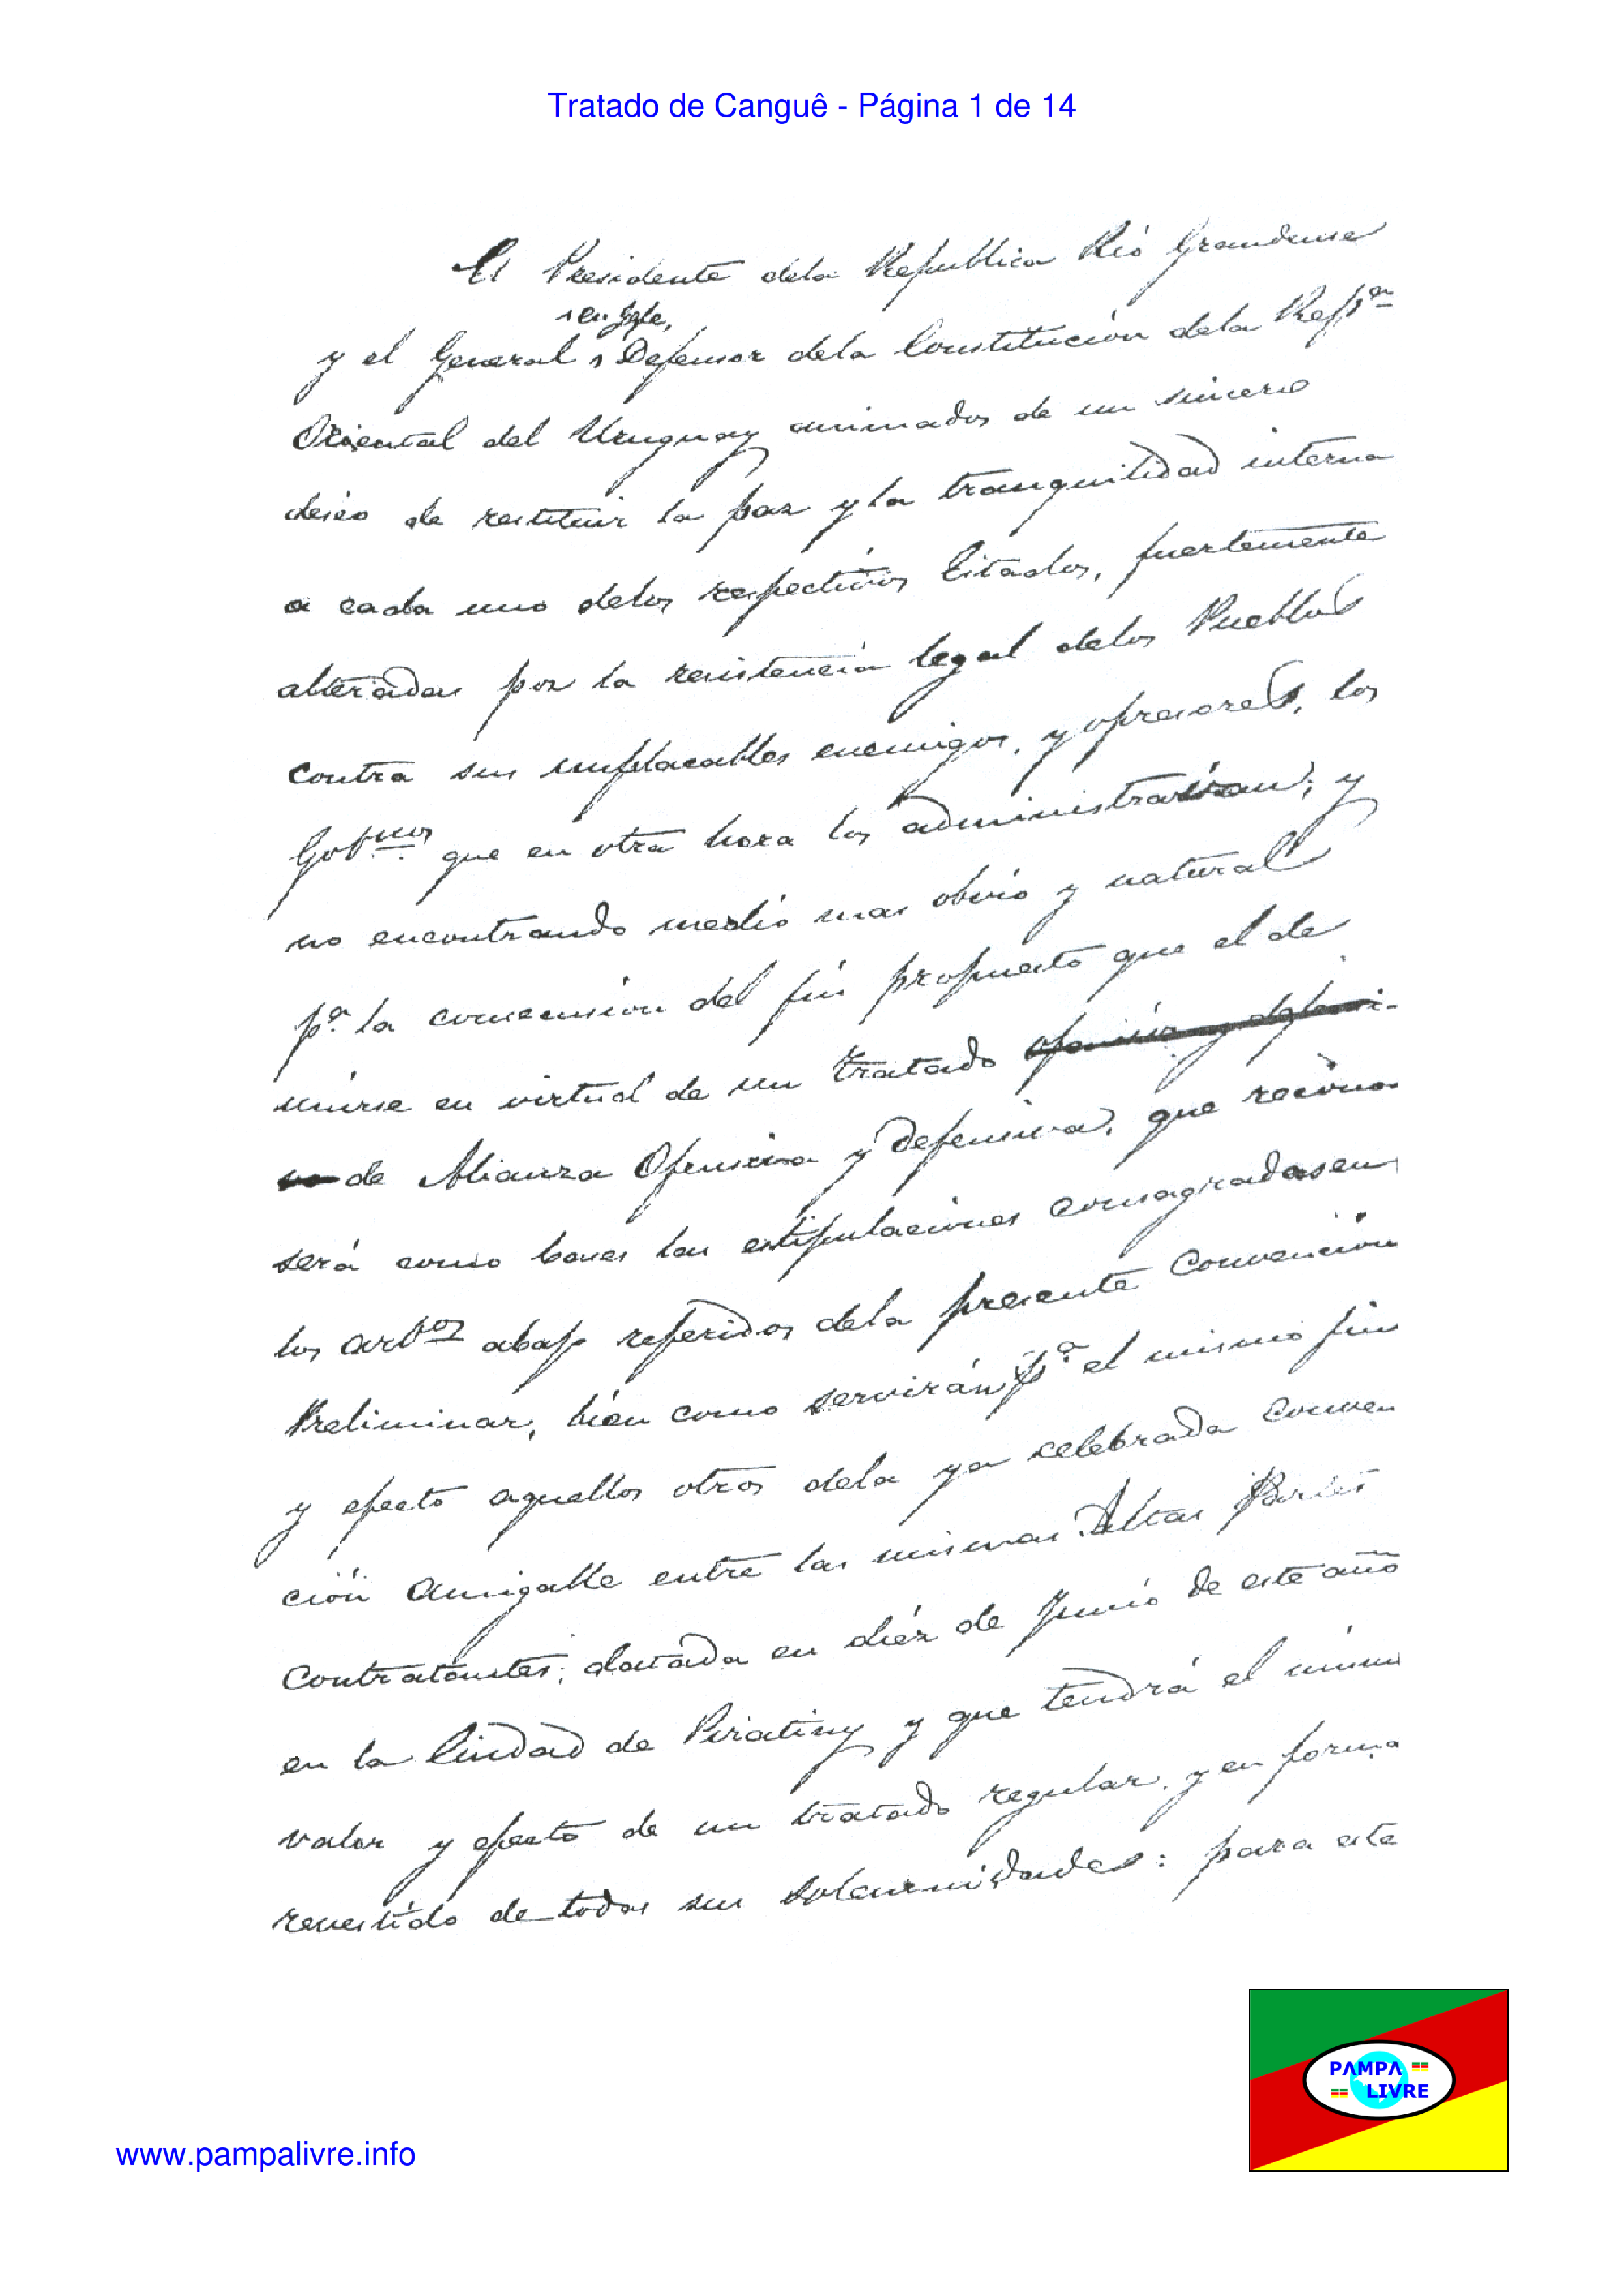 Tratado de Canguê - Página 1 de 14
El Presidente dela Republica Rio Grandense
en Gefe,
y el General Defensor dela Constitución dela Repªⁿ
Oriental del Uruguay animados de un sincero
deseo de restituir la paz y la tranquilidad interna
a cada uno delos respectivos Estados, fuertemente
alteradas por la resistencia legal delos Pueblos
contra sus implacables enemigos, y opresores, los
Gobⁿᵒˢ que en otra hora los administravan; y
no encontrando medio mas obvio y natural
pª la consecusion del fin propuesto que el de
unirse en virtud de un tratado ofensivo y defensi-
vo de Alianza Ofensiva y Defensiva, que recono
será como bases las estipulaciones consagradas en
los artᵒˢ abajo referidos dela presente Convención
Preliminar, bién como servirán pª el mismo fin
y efecto aquellos otros dela ya celebrada Conven
ción Amigable entre las mismas Altas Partes
Contratantes; datada en diéz de Junio de este año
en la Ciudad de Piratiny y que tendrá el mismo
valor y efecto de un tratado regular, y en forma
revestido de todas sus solemnidades: para este
PAMPA
LIVRE
www.pampalivre.info